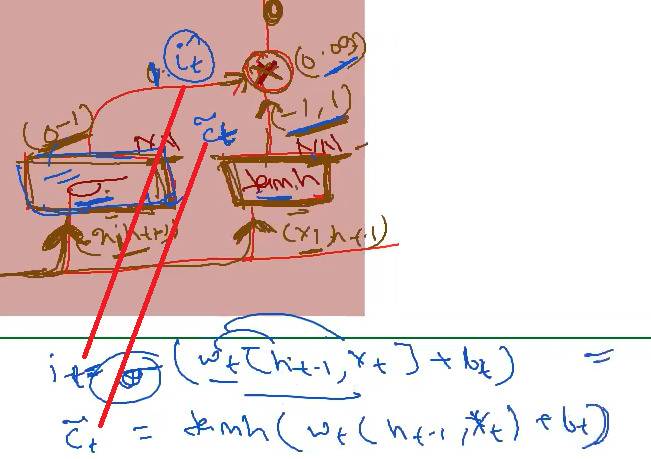 i_t
(0.09)
(0-1)
(-1, 1)
NN
c̃_t
NN
σ
tanh
(x_t, h_{t-1})
i_t = σ (w_t [h_{t-1}, x_t] + b_t) =
c̃_t = tanh (w_t (h_{t-1}, x_t) + b_t)